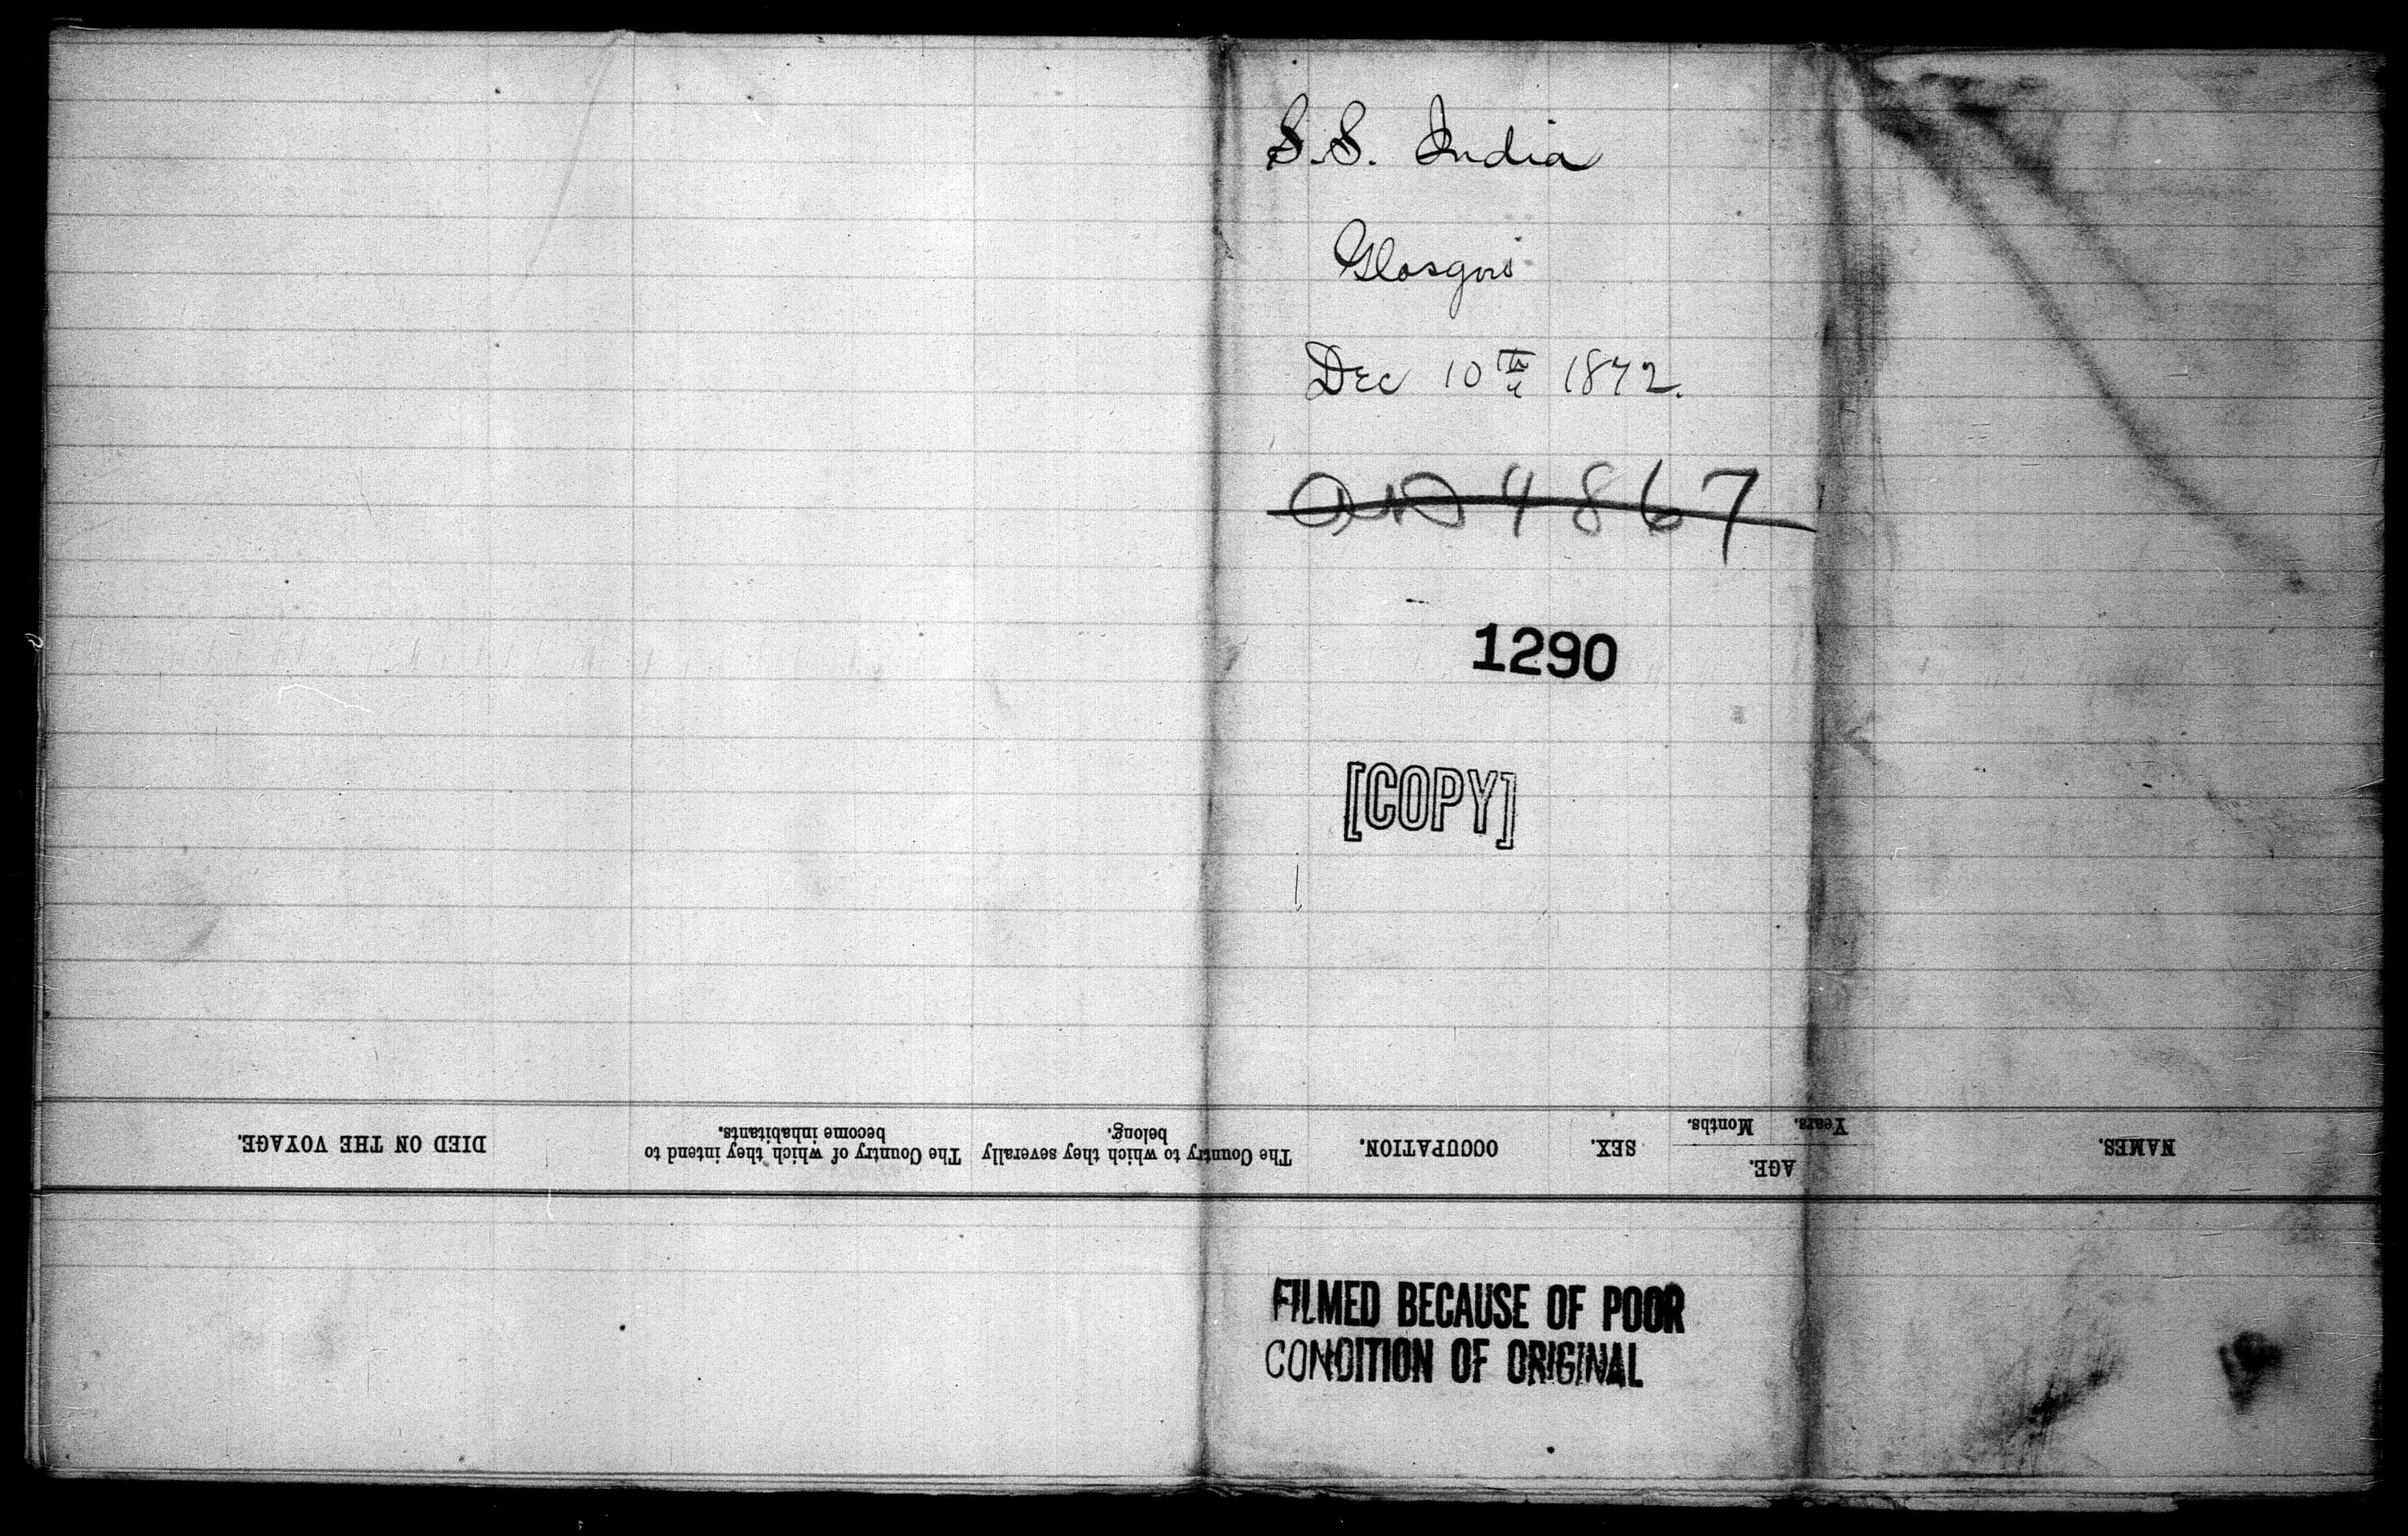 S.S. India
Glasgow
Dec 10th 1872.
4867
1290
[COPY]
NAMES.
AGE.
Years. Months.
SEX.
OCCUPATION.
The Country to which they severally
belong.
The Country of which they intend to
become inhabitants.
DIED ON THE VOYAGE.
FILMED BECAUSE OF POOR
CONDITION OF ORIGINAL